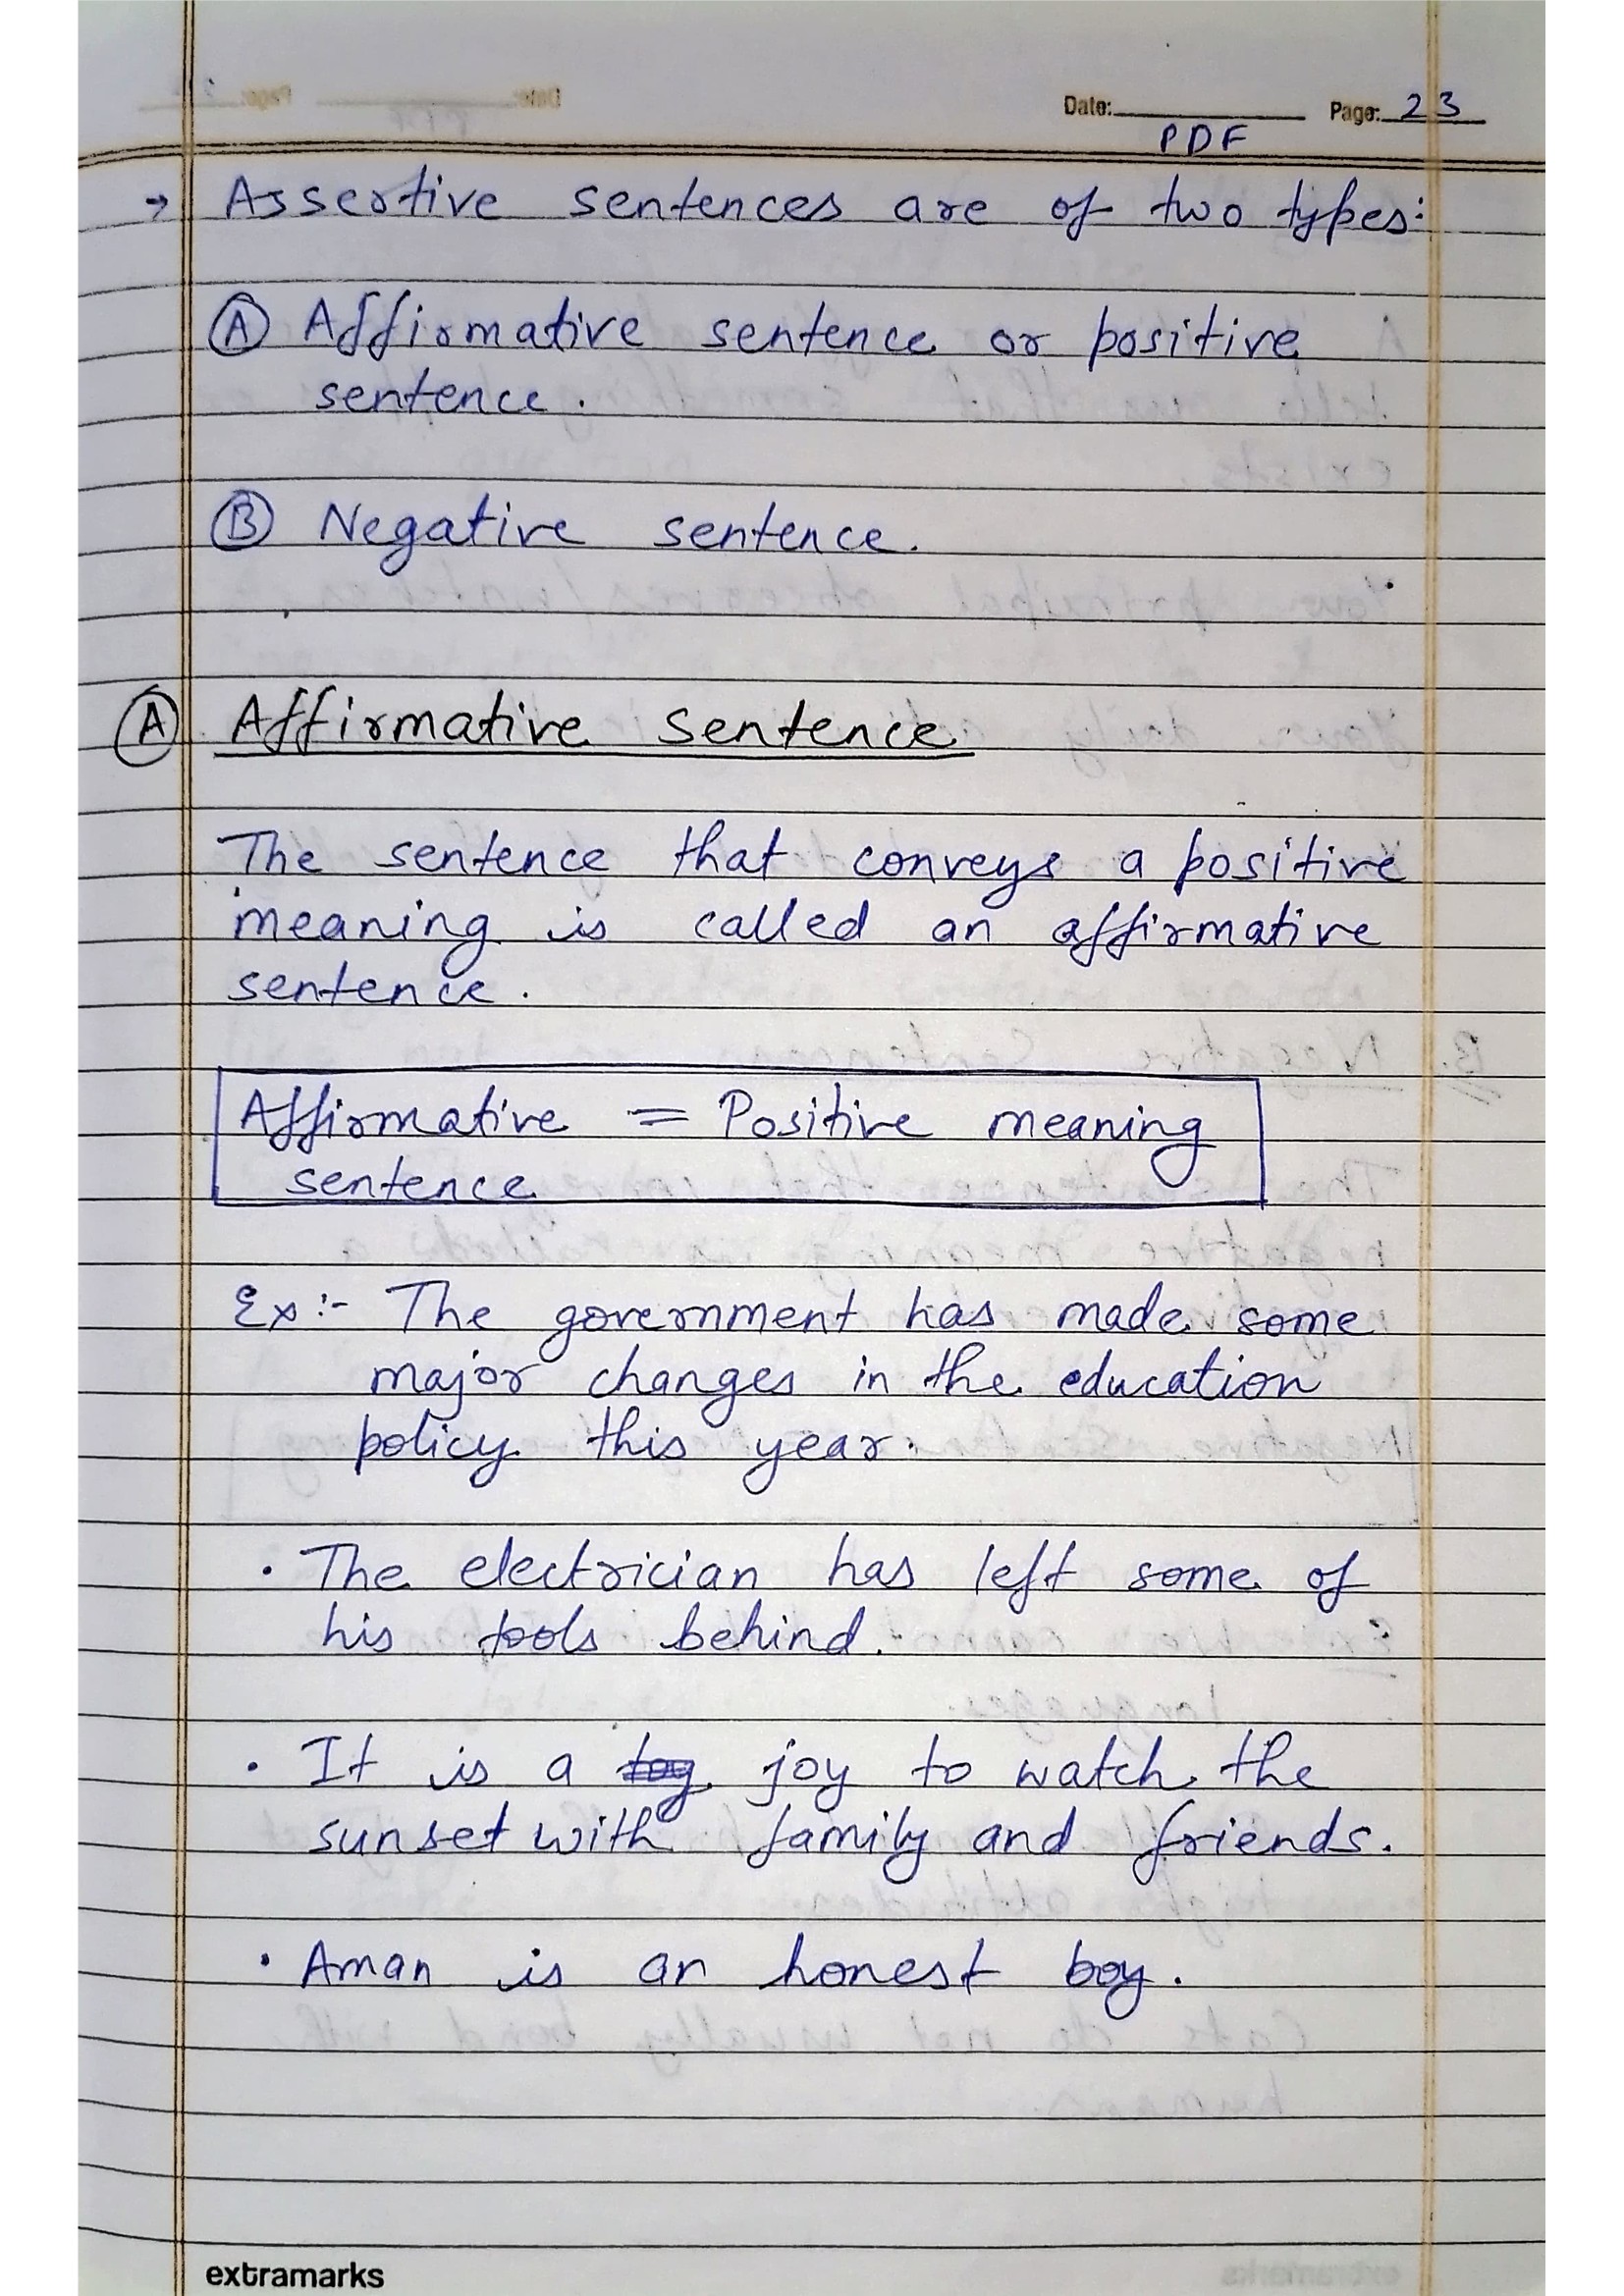 Date: Page: 23
PDF
→ Assertive sentences are of two types:
Ⓐ Affirmative sentence or positive
sentence.
Ⓑ Negative sentence.
Ⓐ Affirmative Sentence
The sentence that conveys a positive
meaning is called an affirmative
sentence.
Affirmative = Positive meaning
sentence
Ex:- The government has made some
major changes in the education
policy this year.
• The electrician has left some of
his tools behind.
• It is a joy to watch the
sunset with family and friends.
• Aman is an honest boy.
extramarks